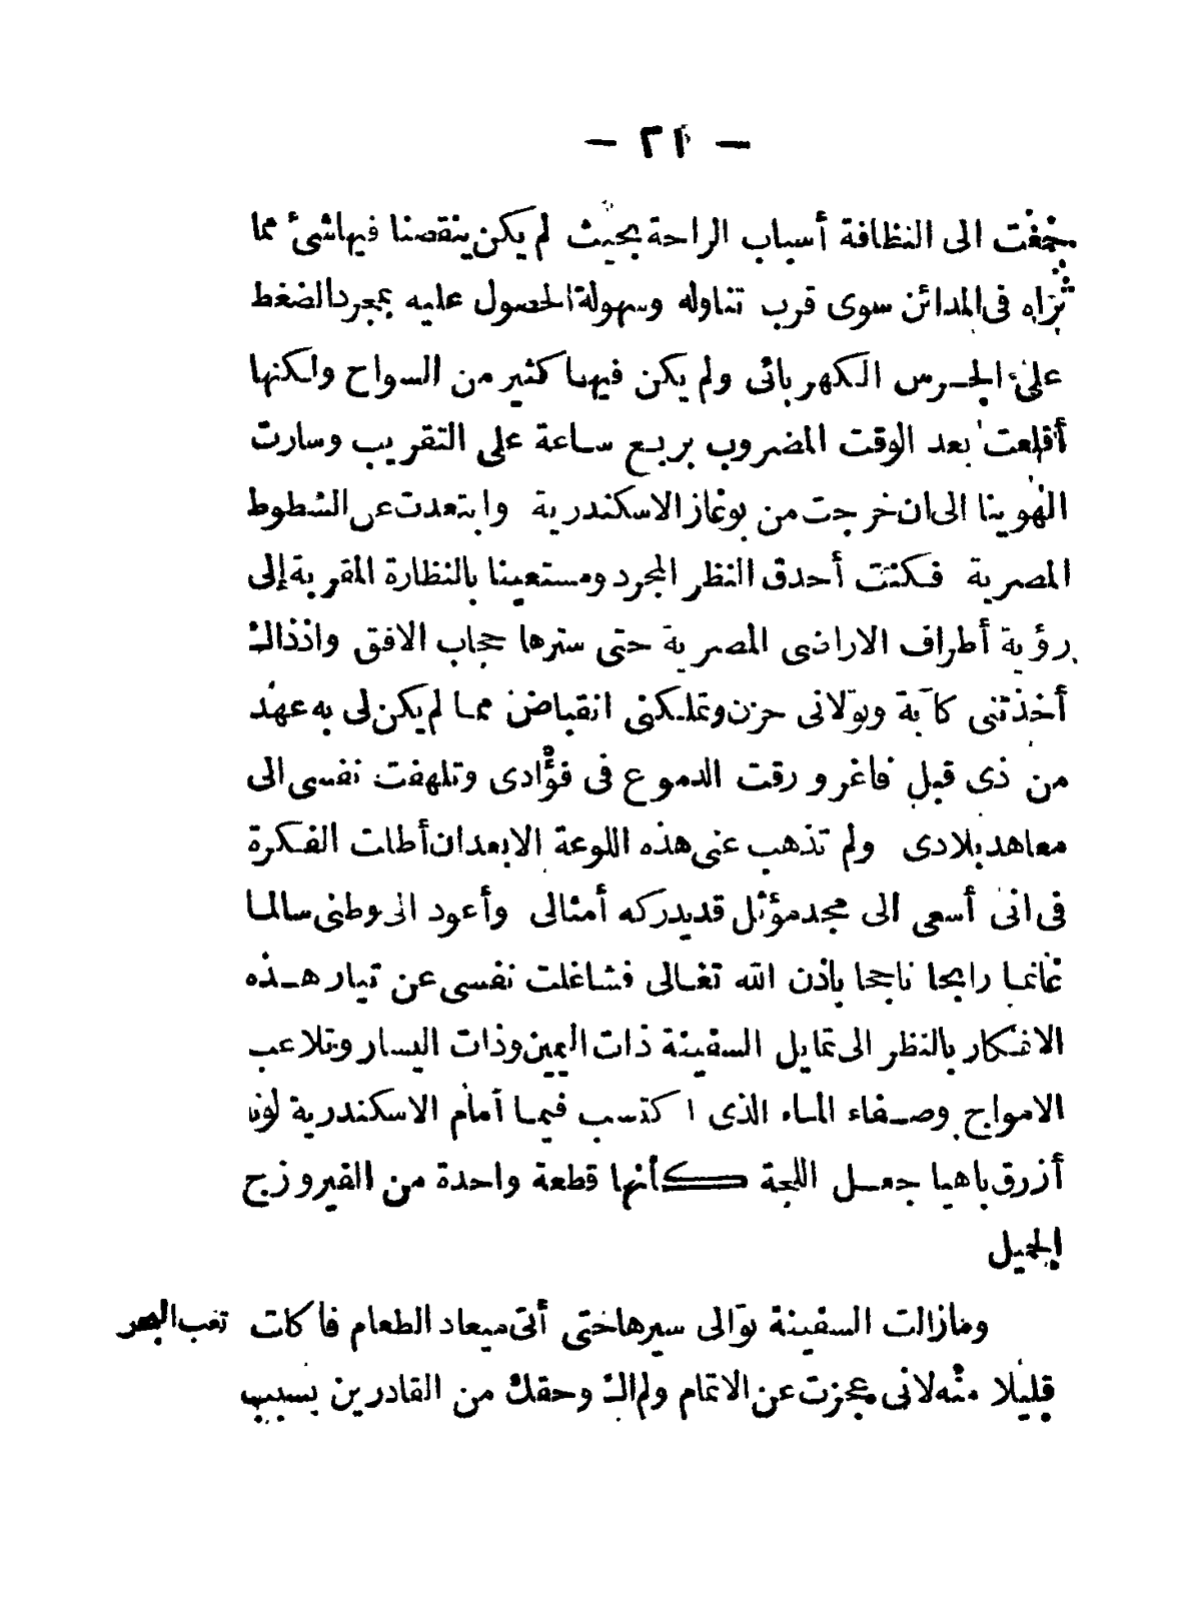 — ٢١ —
جمعت الى النظافة أسباب الراحة بحيث لم يكن ينقصنا فيها شئ مما
نراه فى المدائن سوى قرب تناوله وسهولة الحصول عليه بمجرد الضغط
على الجرس الكهربائى ولم يكن فيها كثير من السواح ولكنها
أقلعت بعد الوقت المضروب بربع ساعة على التقريب وسارت
الهوينا الى ان خرجت من بوغاز الاسكندرية وابتعدت عن الشطوط
المصرية فكنت أحدق النظر المجرد ومستعينا بالنظارة المقربة إلى
رؤية أطراف الاراضى المصرية حتى سترها حجاب الافق واذذاك
أخذتنى كآبة وتولانى حزن وتملكنى انقباض مما لم يكن لى به عهد
من ذى قبل فاغرورقت الدموع فى فؤادى وتلهفت نفسى الى
معاهد بلادى ولم تذهب عنى هذه اللوعة الا بعد ان أطلت الفكرة
فى انى أسعى الى مجد مؤثل قد يدركه أمثالى وأعود الى وطنى سالما
غانما رابحا ناجحا باذن الله تعالى فشاغلت نفسى عن تيار هذه
الافكار بالنظر الى تمايل السفينة ذات اليمين وذات اليسار وتلاعب
الامواج وصفاء الماء الذى اكتسب فيما أمام الاسكندرية لونا
أزرق باهيا جعل اللجة كأنها قطعة واحدة من الفيروزج
الجميل
ومازالت السفينة توالى سيرها حتى أتى ميعاد الطعام فاكلت
تعب البحر
قليلا منه لانى عجزت عن الاتمام ولم الك وحقك من القادرين بسبب